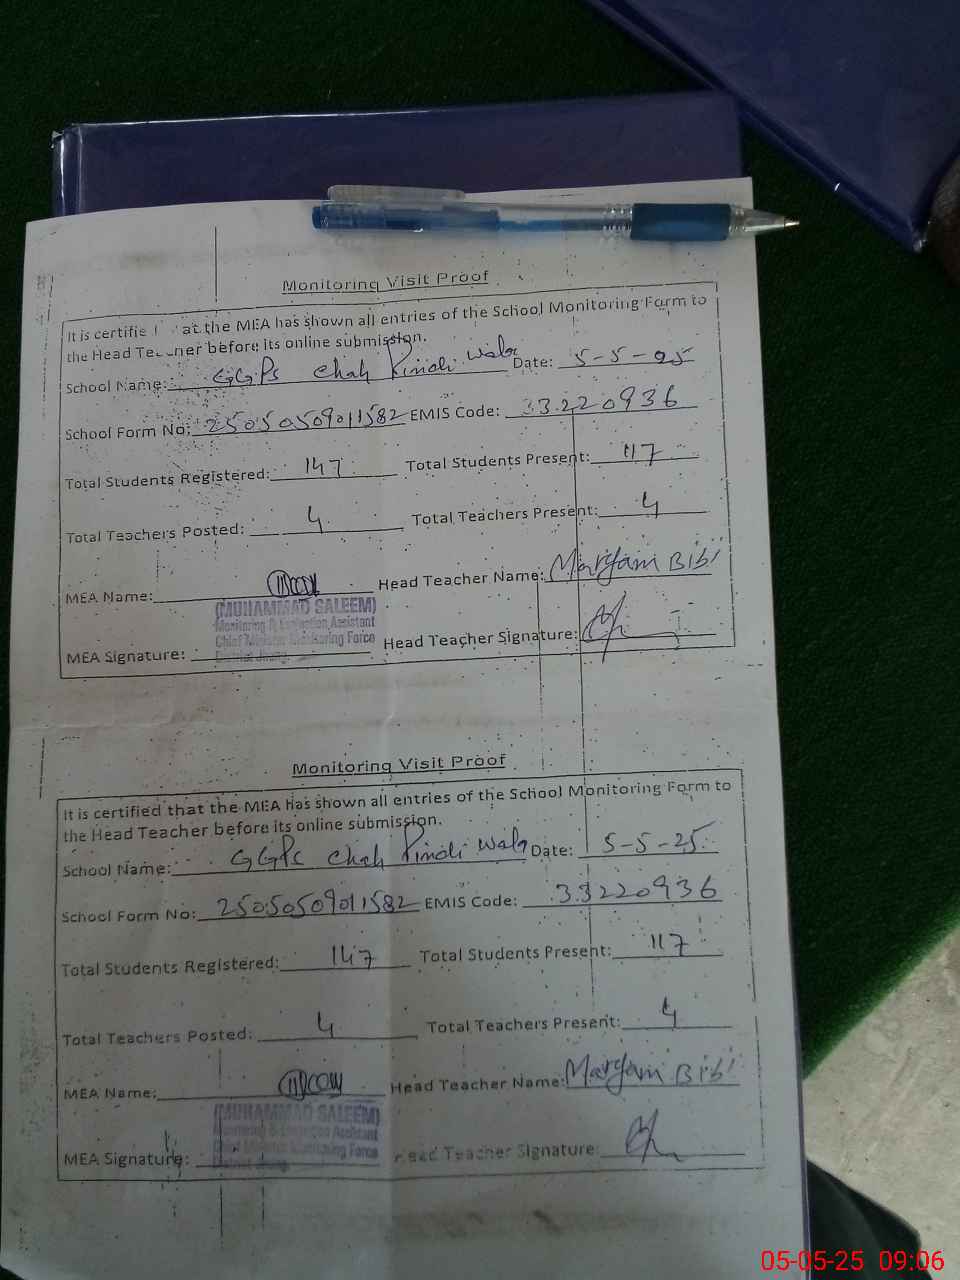 Monitoring Visit Proof
It is certifie at the MEA has shown all entries of the School Monitoring Form to
the Head Teacher before its online submission.
School Name: GGPS Chah Pindi Wala Date: 5-5-25
School Form No: 25050509011582 EMIS Code: 33220936
Total Students Registered: 147 Total Students Present: 117
Total Teachers Posted: 4 Total Teachers Present: 4
MEA Name: Head Teacher Name: Maryam Bibi
(MUHAMMAD SALEEM)
Monitoring & Evaluation Assistant
Chief Minister Monitoring Force
District Jhang
MEA Signature: Head Teacher Signature:
Monitoring Visit Proof
It is certified that the MEA has shown all entries of the School Monitoring Form to
the Head Teacher before its online submission.
School Name: GGPS Chah Pindi Wala Date: 5-5-25
School Form No: 25050509011582 EMIS Code: 33220936
Total Students Registered: 147 Total Students Present: 117
Total Teachers Posted: 4 Total Teachers Present: 4
MEA Name: Head Teacher Name: Maryam Bibi
(MUHAMMAD SALEEM)
Monitoring & Evaluation Assistant
Chief Minister Monitoring Force
District Jhang
MEA Signature: Head Teacher Signature:
05-05-25 09:06